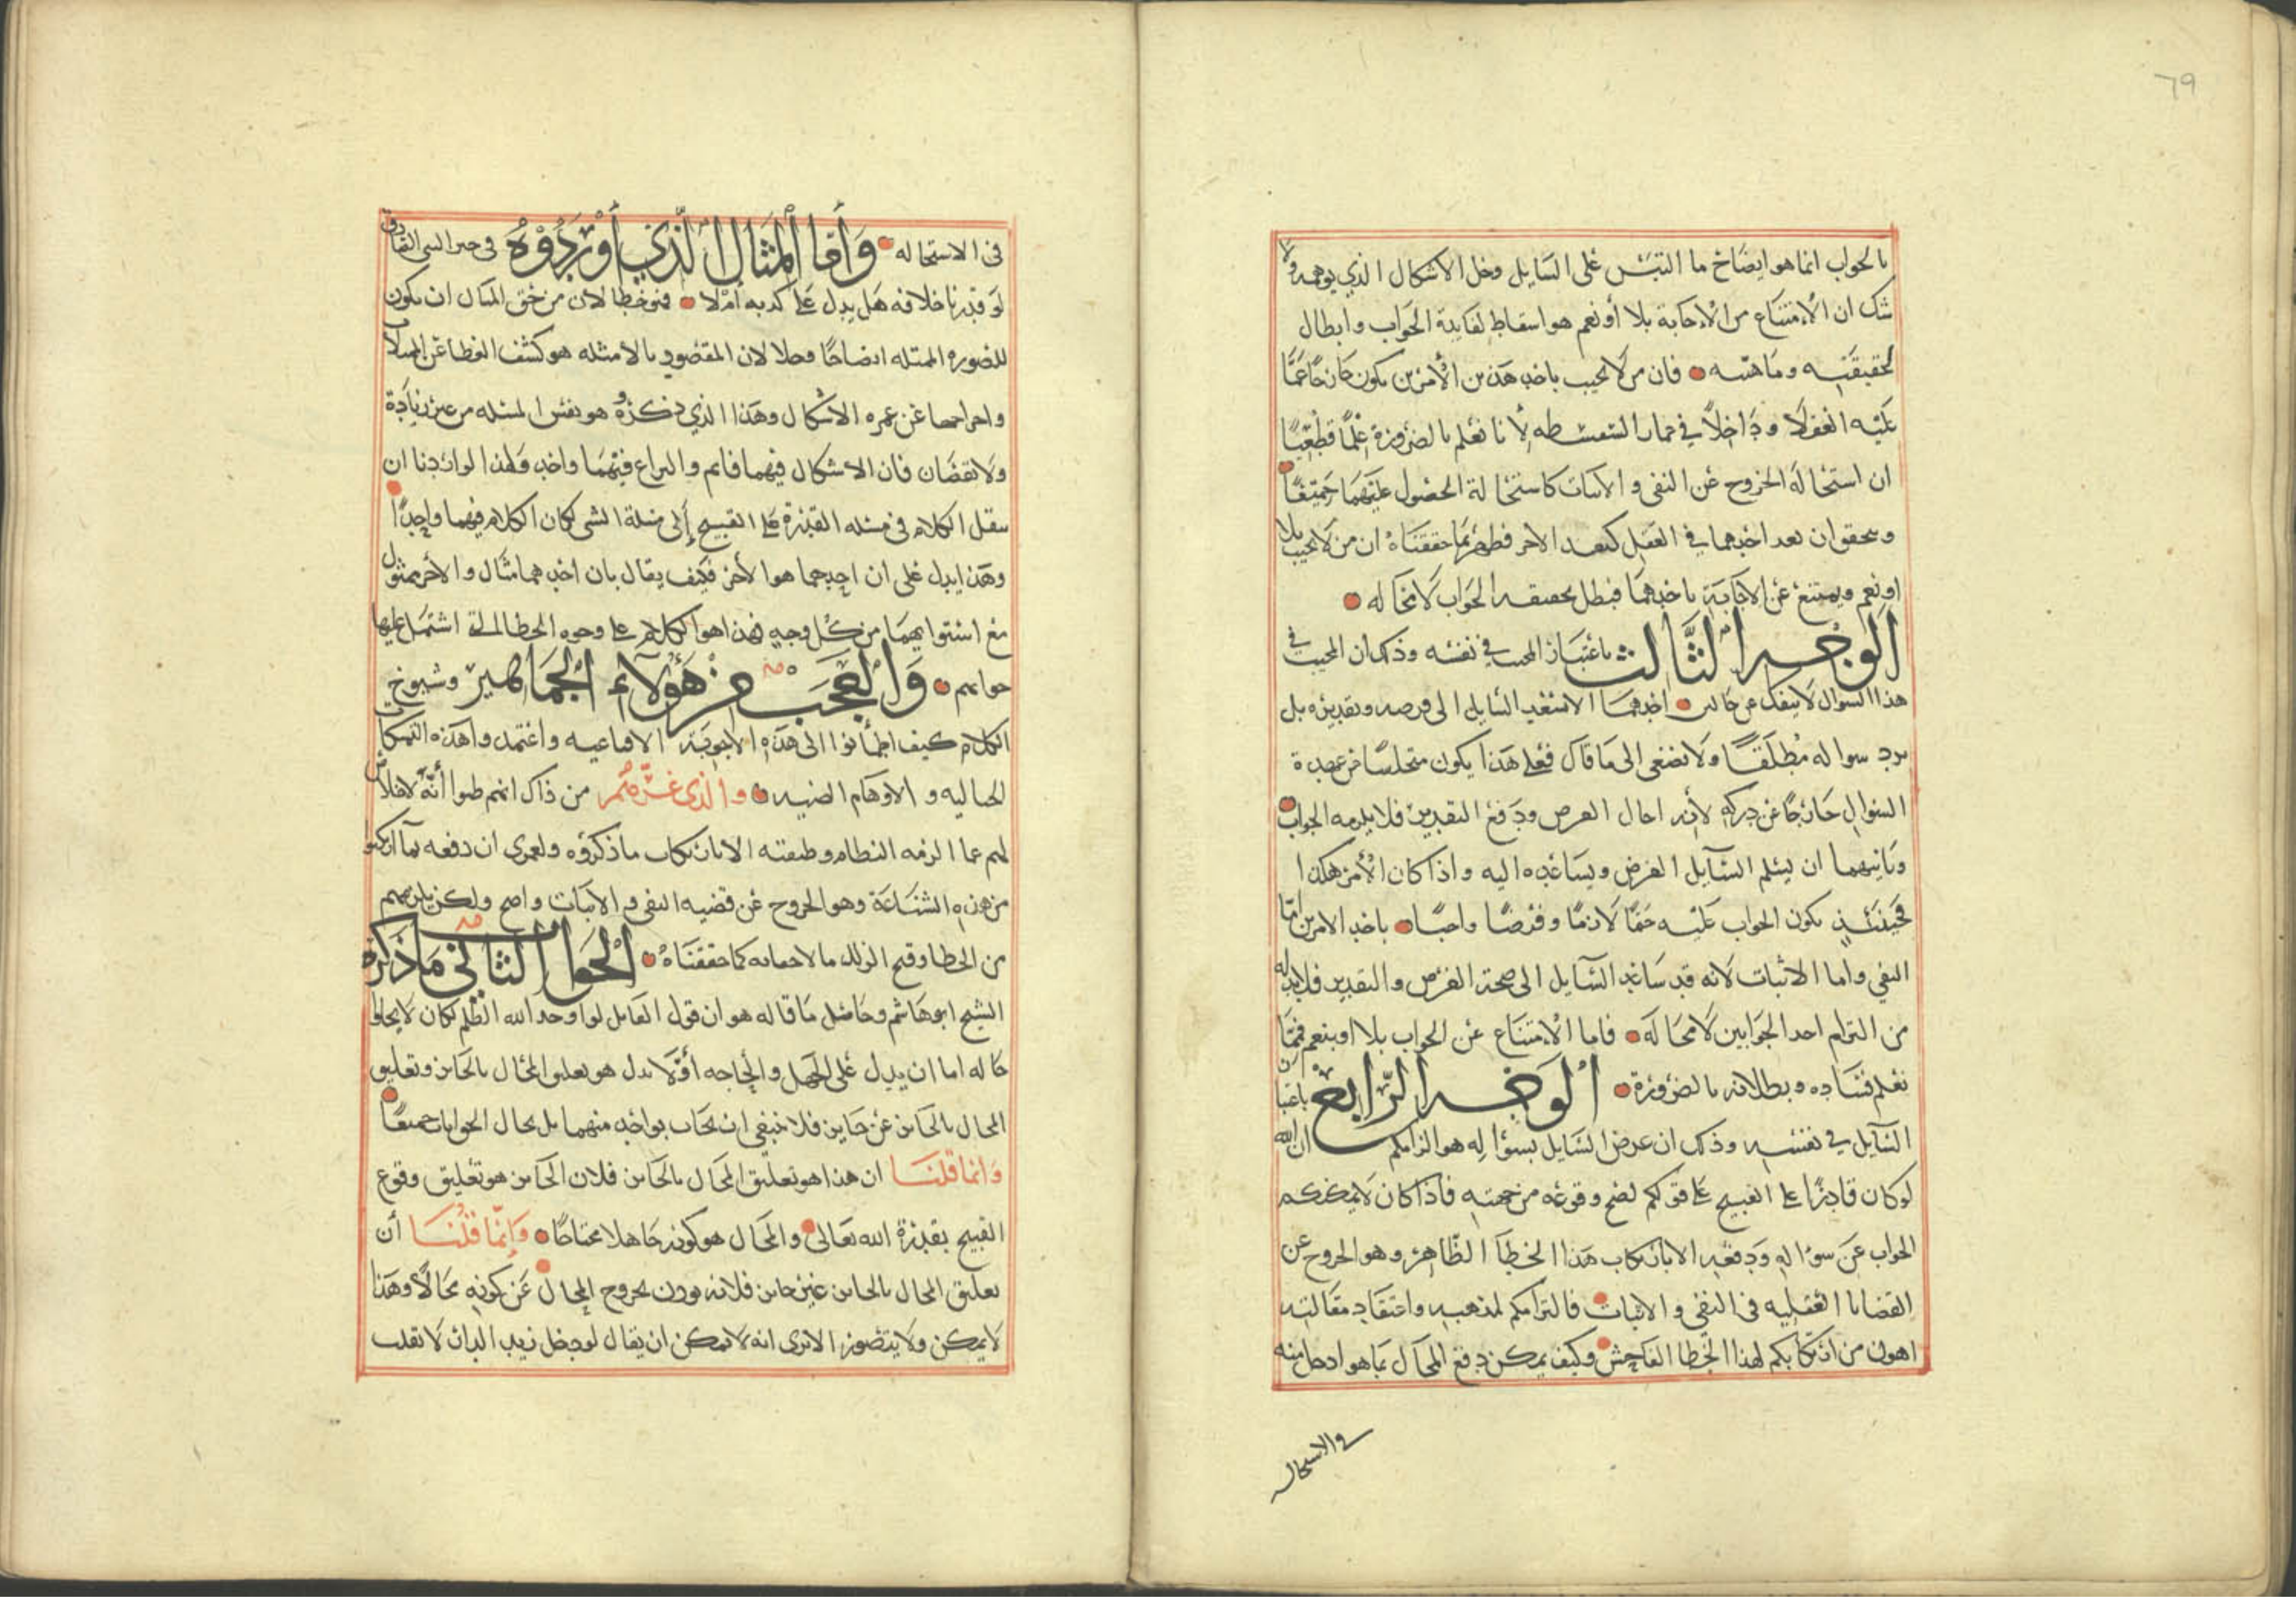 ٦٩
بالجواب انما هو ايضاح ما التبس على السايل وحل الاشكال الذي يوهمه ولا
شك ان الامتناع من الاجابة بلا أو نعم هو اسقاط لفايدة الجواب وابطال
لحقيقته وماهيته فان من لا يجيب باحد هذين الأمرين يكون خارجا عما
عليه العقلا وداخلاً في السفسطه لأنا نعلم بالضرورة علمًا قطعيًا
ان استحالة الخروج عن النفي والاثبات كاستحالة الحصول عليهما جميعًا
وتحقق ان بعد احدهما في العقل كبعد الاخر فظهر بما حققناه ان من لا يجيب بلا
او نعم ويمتنع عن الاجابة باحدهما فبطل بحقيقه الجواب لا محاله
الوجه الثالث باعتبار المجيب في نفسه وذلك ان المجيب في
هذا السوال لا ينفك عن حالين احدهما الا يستفيد السايل الى فرضه وتقديره بل
يرد سواله مطلقًا ولا يصغى الى ما قال فعلى هذا يكون متخلصًا عن عهدة
السوال خارجًا عن دركه لأنه احال الفرض ودفع التقدير فلا يلزمه الجواب
وثانيهما ان يسلم السآيل الفرض ويساعده اليه واذا كان الأمر هكذا
فحينئذٍ يكون الجواب عليه حتمًا لازمًا وفرضًا واجبًا باحد الامرين امّا
النفي واما الاثبات لانه قد ساعد السآيل الى صحة الفرض والتقدير فلا بد له
من التزام احد الجوابين لا محاله فاما الامتناع عن الجواب بلا او بنعم فمما
نعلم فساده وبطلانه بالضرورة الوجه الرابع باعتبار
السآيل في نفسه وذلك ان غرض السايل بسؤاله هو الزامكم ان الله
لو كان قادرًا على القبيح على قولكم لصح وقوعه من جهته فاذا كان لا يمكنكم
الجواب عن سؤاله ودفعه الا بارتكاب هذا الخطأ الظاهر وهو الخروج عن
القضايا العقليه في النفي والاثبات فالتزامكم لمذهبه واعتقاد مقالته
اهون من ارتكابكم لهذا الخطا الفاحش وكيف يمكن دفع المحال بما هو ادخل منه
في الاستحاله
في الاستحاله وأما المثال الذي أوردوه في خبر النبي الصادق
لو قدرنا خلافه هل يدل على كذبه أم لا فهو خطا لان من حق المثال ان يكون
للصوره الممثله ايضاحًا وحلا لان المقصود بالامثله هو كشف الغطا عن
واخراجها عن غمره الاشكال وهذا الذي ذكروه هو نفس المسئله من غير زيادة
ولا نقصان فان الاشكال فيهما قايم والنزاع فيهما واحد ولهذا لو اردنا ان
ننقل الكلام في مسئله القدرة على القبيح إلى مسئلة النبي لكان الكلام فيهما واحدًا
وهذا يدل على ان احدهما هو الأخر فكيف يقال بان احدهما مثال والأخر ممثول
مع استوايهما من كل وجه فهذا هو الكلام على وجوه الخطا التي اشتمل عليها
جوابهم وَالعجب من هؤلاء الجماهير وشيوخ
الكلام كيف اطمأنوا الى هذه الأجوبة الاقناعيه واعتمدوا هذه التمسكات
الخياليه والاوهام والذي غرّهم من ذاك انهم ظنوا أنّه لا خلاص
لهم عما الزمه النظام وطبقته الا بارتكاب ما ذكروه ولعمري ان دفعه بما ارتكبوا
من هذه الشناعة وهو الخروج عن قضيه النفي والاثبات واضح ولكن يلزمهم
من الخطا وقبح الزلل ما لا خفا به كما حققناه الجواب الثاني ما ذكره
الشيخ ابو هاشم وحاصل ما قاله هو ان قول القايل لو اوجد الله الظلم لكان لا يخلوا
حاله اما ان يدل على الجهل والحاجه أوْ لا يدل هو تعليق المحال بالجايز وتعليق
المحال بالجايز غير جايز فلا ينبغي ان يجاب بواحد منهما بل يحال الجوابان جميعًا
وانما قلنا ان هذا هو تعليق المحال بالجايز فلان الجايز هو تعليق وقوع
القبيح بقدرة الله تعالى والمحال هو كونه جاهلا محتاجًا وَإنّما قلنا أن
تعليق المحال بالجايز غير جايز فلانه يوذن بخروج المحال عن كونه محالاً وهذا
لا يمكن ولا يتصور الا ترى انه لا يمكن ان يقال لو دخل زيد الدار لانقلب